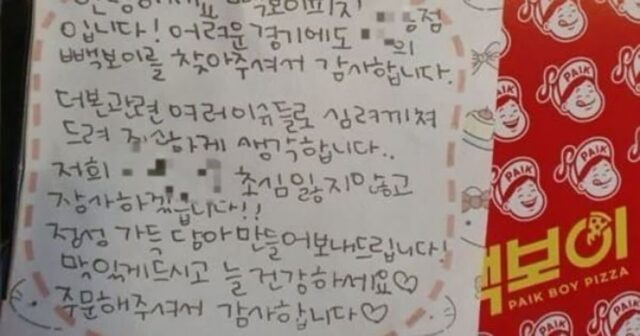 안녕하세요 빽보이피자
점입니다! 어려운 경기에도 의
빽보이를 찾아주셔서 감사합니다.
더본관련 여러이슈들로 심려끼쳐
드려 죄산하게 생각합니다..
저희 초심잃지않고
장사하겠습니다!!
정성 가득 담아 만들어보내드립니다!
맛있게드시고 늘 건강하세요♡
주문해주셔서 감사합니다♡
PAIK
PAIK
PAIK
백보이
PAIK BOY PIZZA